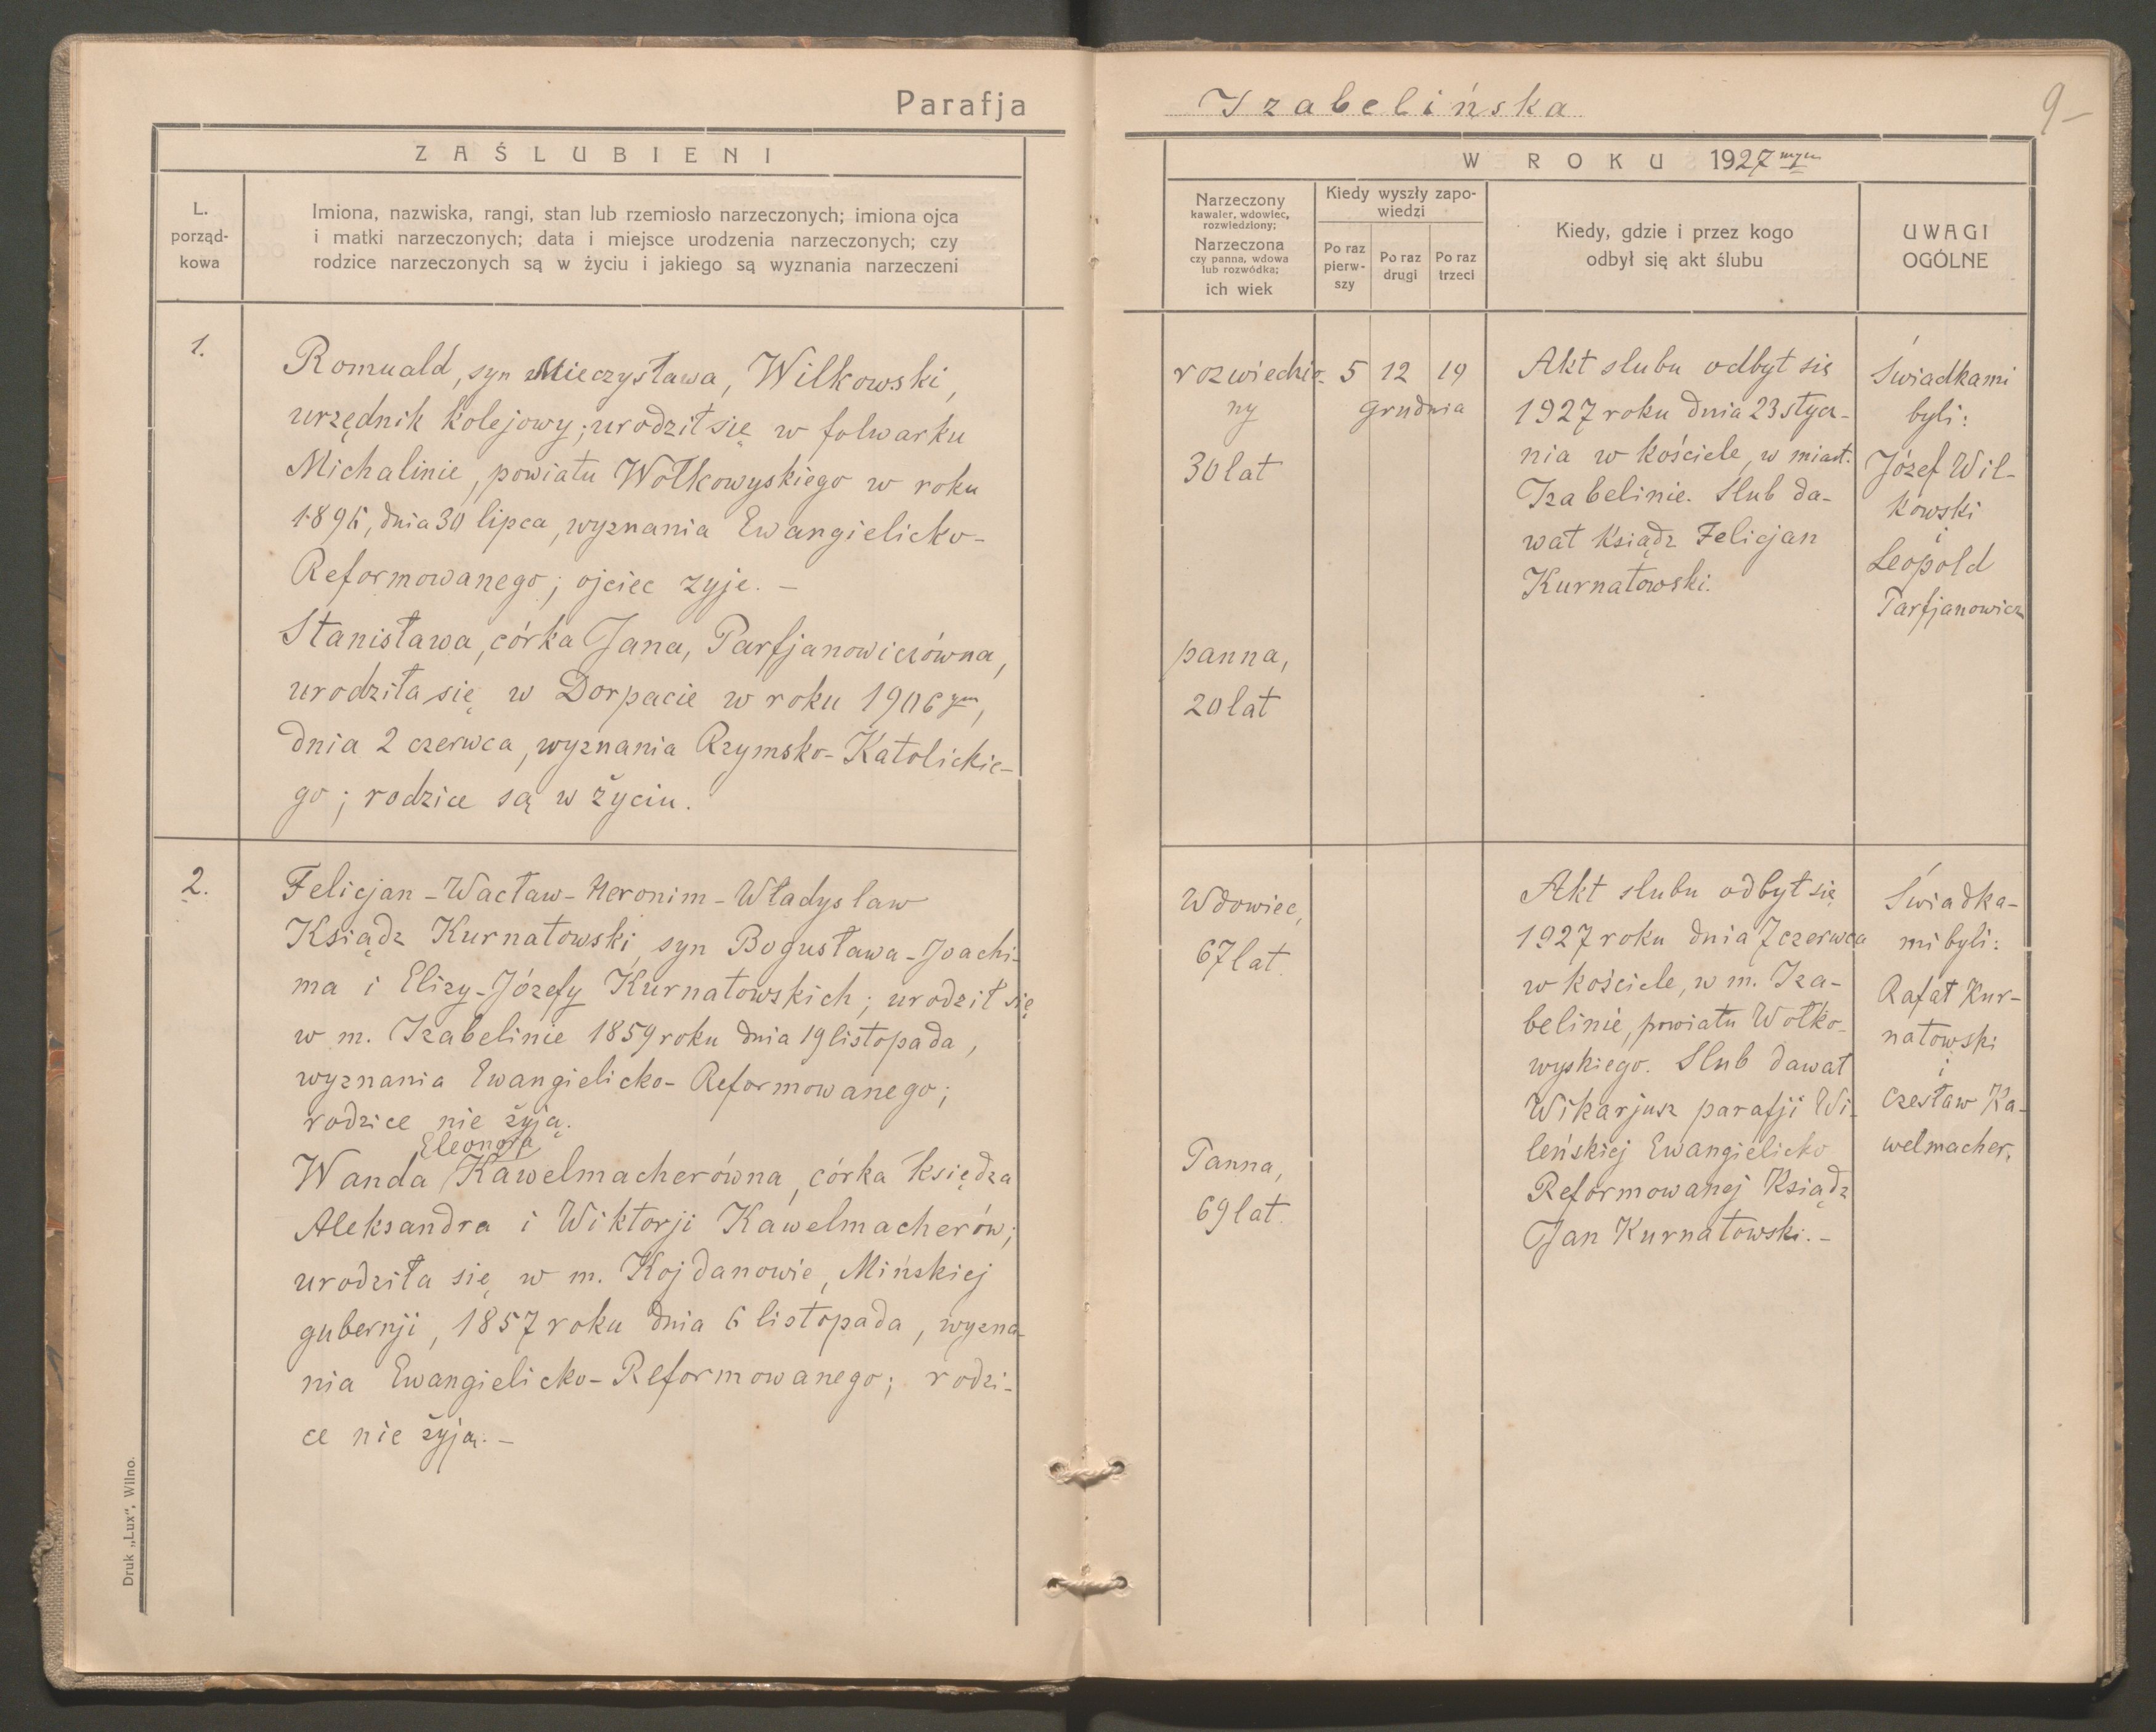 Parafja
Izabelińska
9
ZAŚLUBIENI
W ROKU 1927 mym
L.
porząd-
kowa
Imiona, nazwiska, rangi, stan lub rzemiosło narzeczonych; imiona ojca
i matki narzeczonych; data i miejsce urodzenia narzeczonych; czy
rodzice narzeczonych są w życiu i jakiego są wyznania narzeczeni
Narzeczony
kawaler, wdowiec,
rozwiedziony;
Narzeczona
czy panna, wdowa
lub rozwódka;
ich wiek
Kiedy wyszły zapo-
wiedzi
Po raz
pierw-
szy
Po raz
drugi
Po raz
trzeci
Kiedy, gdzie i przez kogo
odbył się akt ślubu
UWAGI
OGÓLNE
1.
Romuald, syn Mieczysława, Wilkowski,
urzędnik kolejowy; urodził się w folwarku
Michalinie, powiatu Wołkowyskiego w roku
1896, dnia 30 lipca, wyznania Ewangielicko-
Reformowanego; ojciec żyje. –
Stanisława, córka Jana, Parfjanowiczówna,
urodziła się w Dorpacie w roku 1906 ym,
dnia 2 czerwca, wyznania Rzymsko-Katolickie-
go; rodzice są w życiu.
rozwiedzio-
ny
30 lat
panna,
20 lat
5 12 19
grudnia
Akt slubu odbył się
1927 roku dnia 23 stycz-
nia w kościele, w miast.
Izabelinie. Slub da-
wał Ksiądz Felicjan
Kurnatowski.
Świadkami
byli:
Józef Wil-
kowski
i
Leopold
Parfjanowicz
2.
Felicjan-Wacław-Heronim-Władysław
Ksiądz Kurnatowski, syn Bogusława-Joachi-
ma i Elizy-Józefy Kurnatowskich; urodził się
w m. Izabelinie 1859 roku dnia 19 listopada,
wyznania Ewangielicko-Reformowanego;
rodzice nie żyją.
Eleonora
Wanda Kawelmacherówna, córka księdza
Aleksandra i Wiktorji Kawelmacherów;
urodziła się w m. Kojdanowie, Mińskiej
gubernji, 1857 roku dnia 6 listopada, wyzna-
nia Ewangielicko-Reformowanego; rodzi-
ce nie żyją. –
Wdowiec,
67 lat.
Panna,
69 lat.
Akt slubu odbył się
1927 roku dnia 7 czerwca
w kościele, w m. Iza-
belinie, powiatu Wołko-
wyskiego. Slub dawał
Wikarjusz parafji Wi-
leńskiej Ewangielicko
Reformowanej Ksiądz
Jan Kurnatowski. –
Świadka-
mi byli:
Rafał Kur-
natowski
i
Czesław Ka-
welmacher.
Druk „Lux", Wilno.